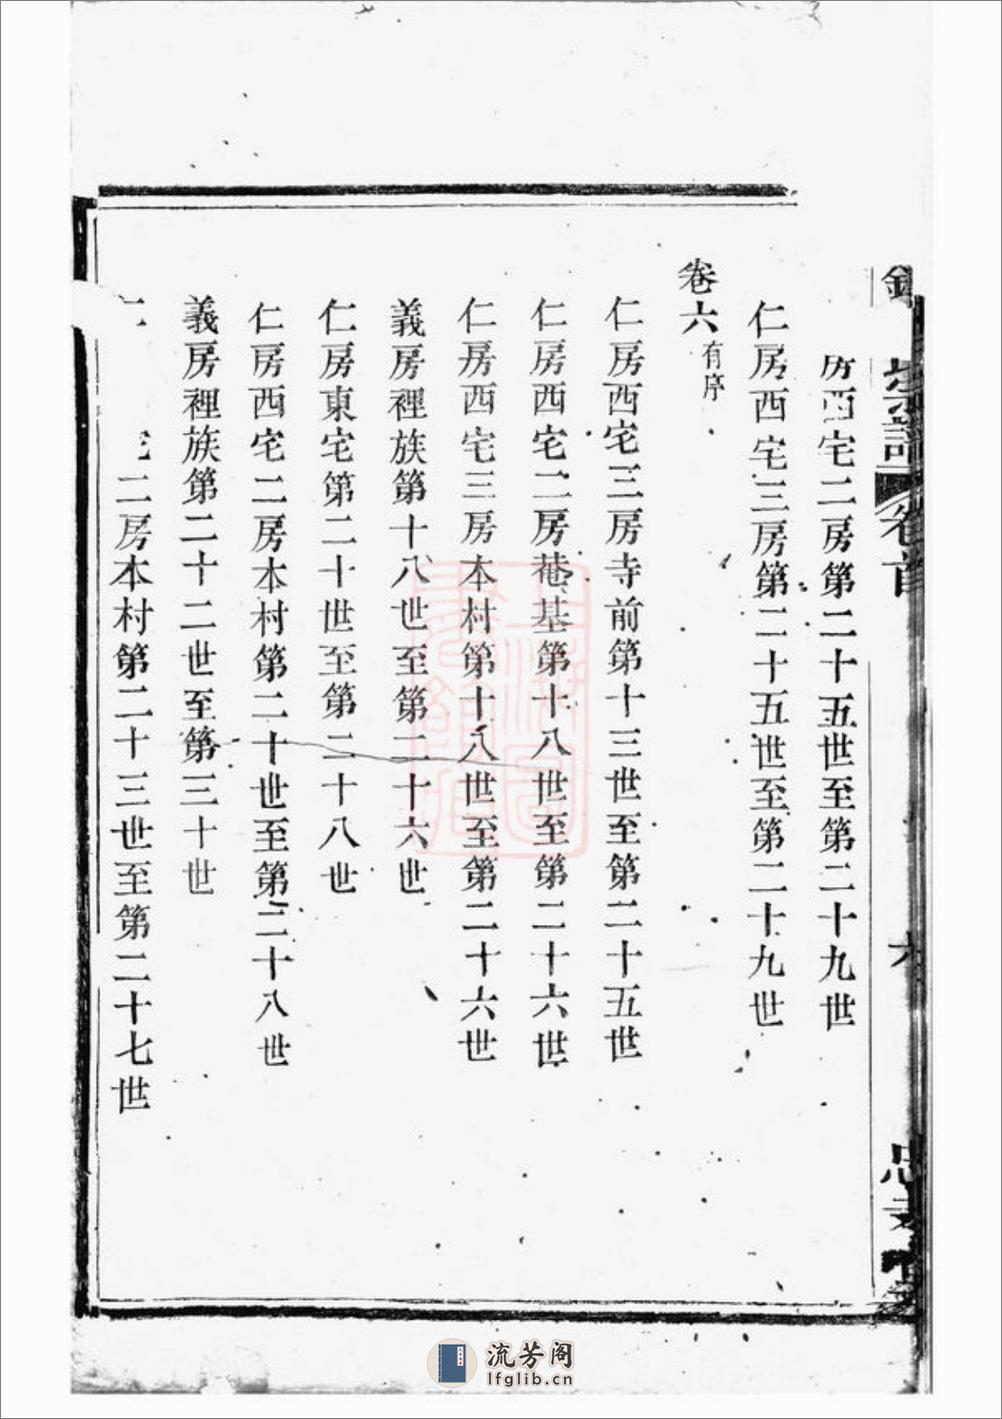 宗譜 卷首
六
房西宅二房第二十五世至第二十九世
仁房西宅三房第二十五世至第二十九世
卷六有序
仁房西宅三房寺前第十三世至第二十五世
仁房西宅二房菴基第十八世至第二十六世
仁房西宅三房本村第十八世至第二十六世
義房裡族第十八世至第二十六世
仁房東宅第二十世至第二十八世
仁房西宅二房本村第二十世至第二十八世
義房裡族第二十二世至第三十世
二房本村第二十三世至第二十七世
流芳阁
lfglib.cn